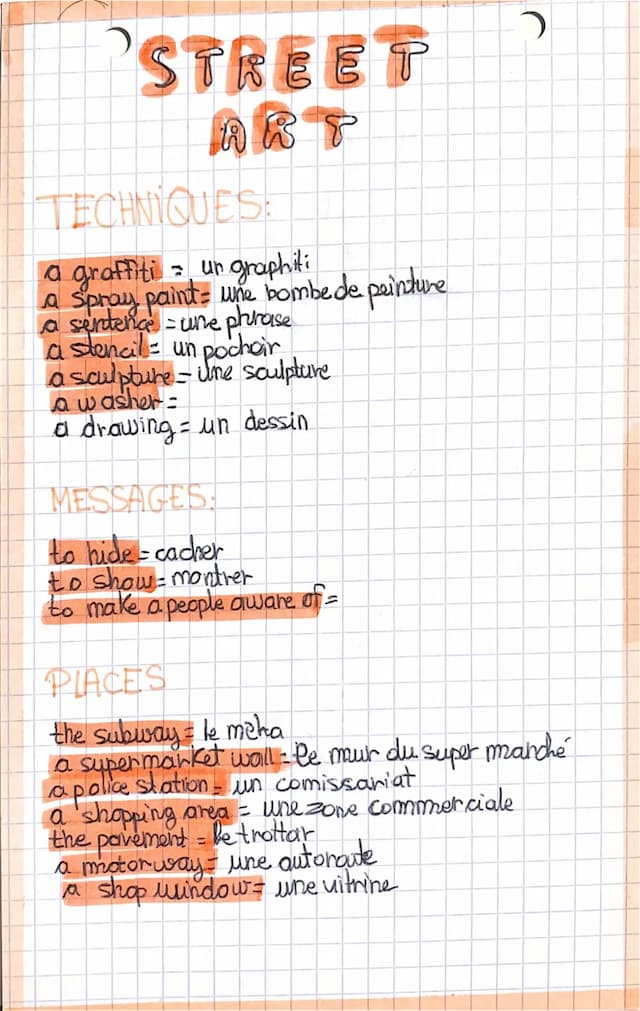 STREET
ART
TECHNIQUES:
a graffiti = un graphiti
a spray paint = une bombe de peinture
a sentence = une phrase
a stencil = un pochoir
a sculpture = une sculpture
a washer =
a drawing = un dessin
MESSAGES:
to hide = cacher
to show = montrer
to make a people aware of =
PLACES
the subway = le métra
a supermarket wall = le mur du super marché
a police station = un comissariat
a shopping area = une zone commerciale
the pavement = le trottar
a motorway = une autoroute
a shop window = une vitrine